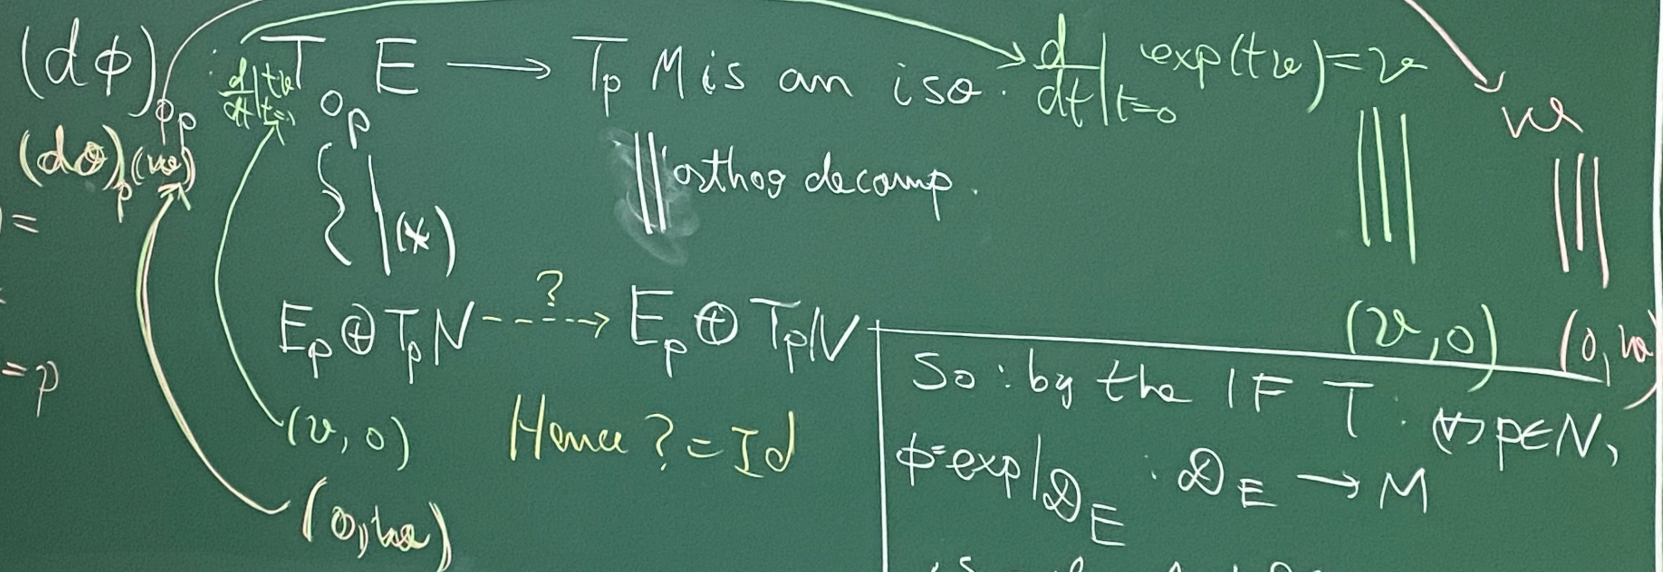 (dϕ)_{0_p} : T_{0_p} E → T_p M is an iso.
d/dt|_{t=0} tv
d/dt|_{t=0} exp(tv) = v
w
(d0)_p (w)
=
|| orthog decomp.
(*)
= p
E_p ⊕ T_p N ---?---> E_p ⊕ T_p N
(v, 0) (0, w)
(v, 0)
Hence ? = Id
(0, w)
So : by the IFT : ∀ p∈N,
ϕ = exp|_{𝒟_E} : 𝒟_E → M
is